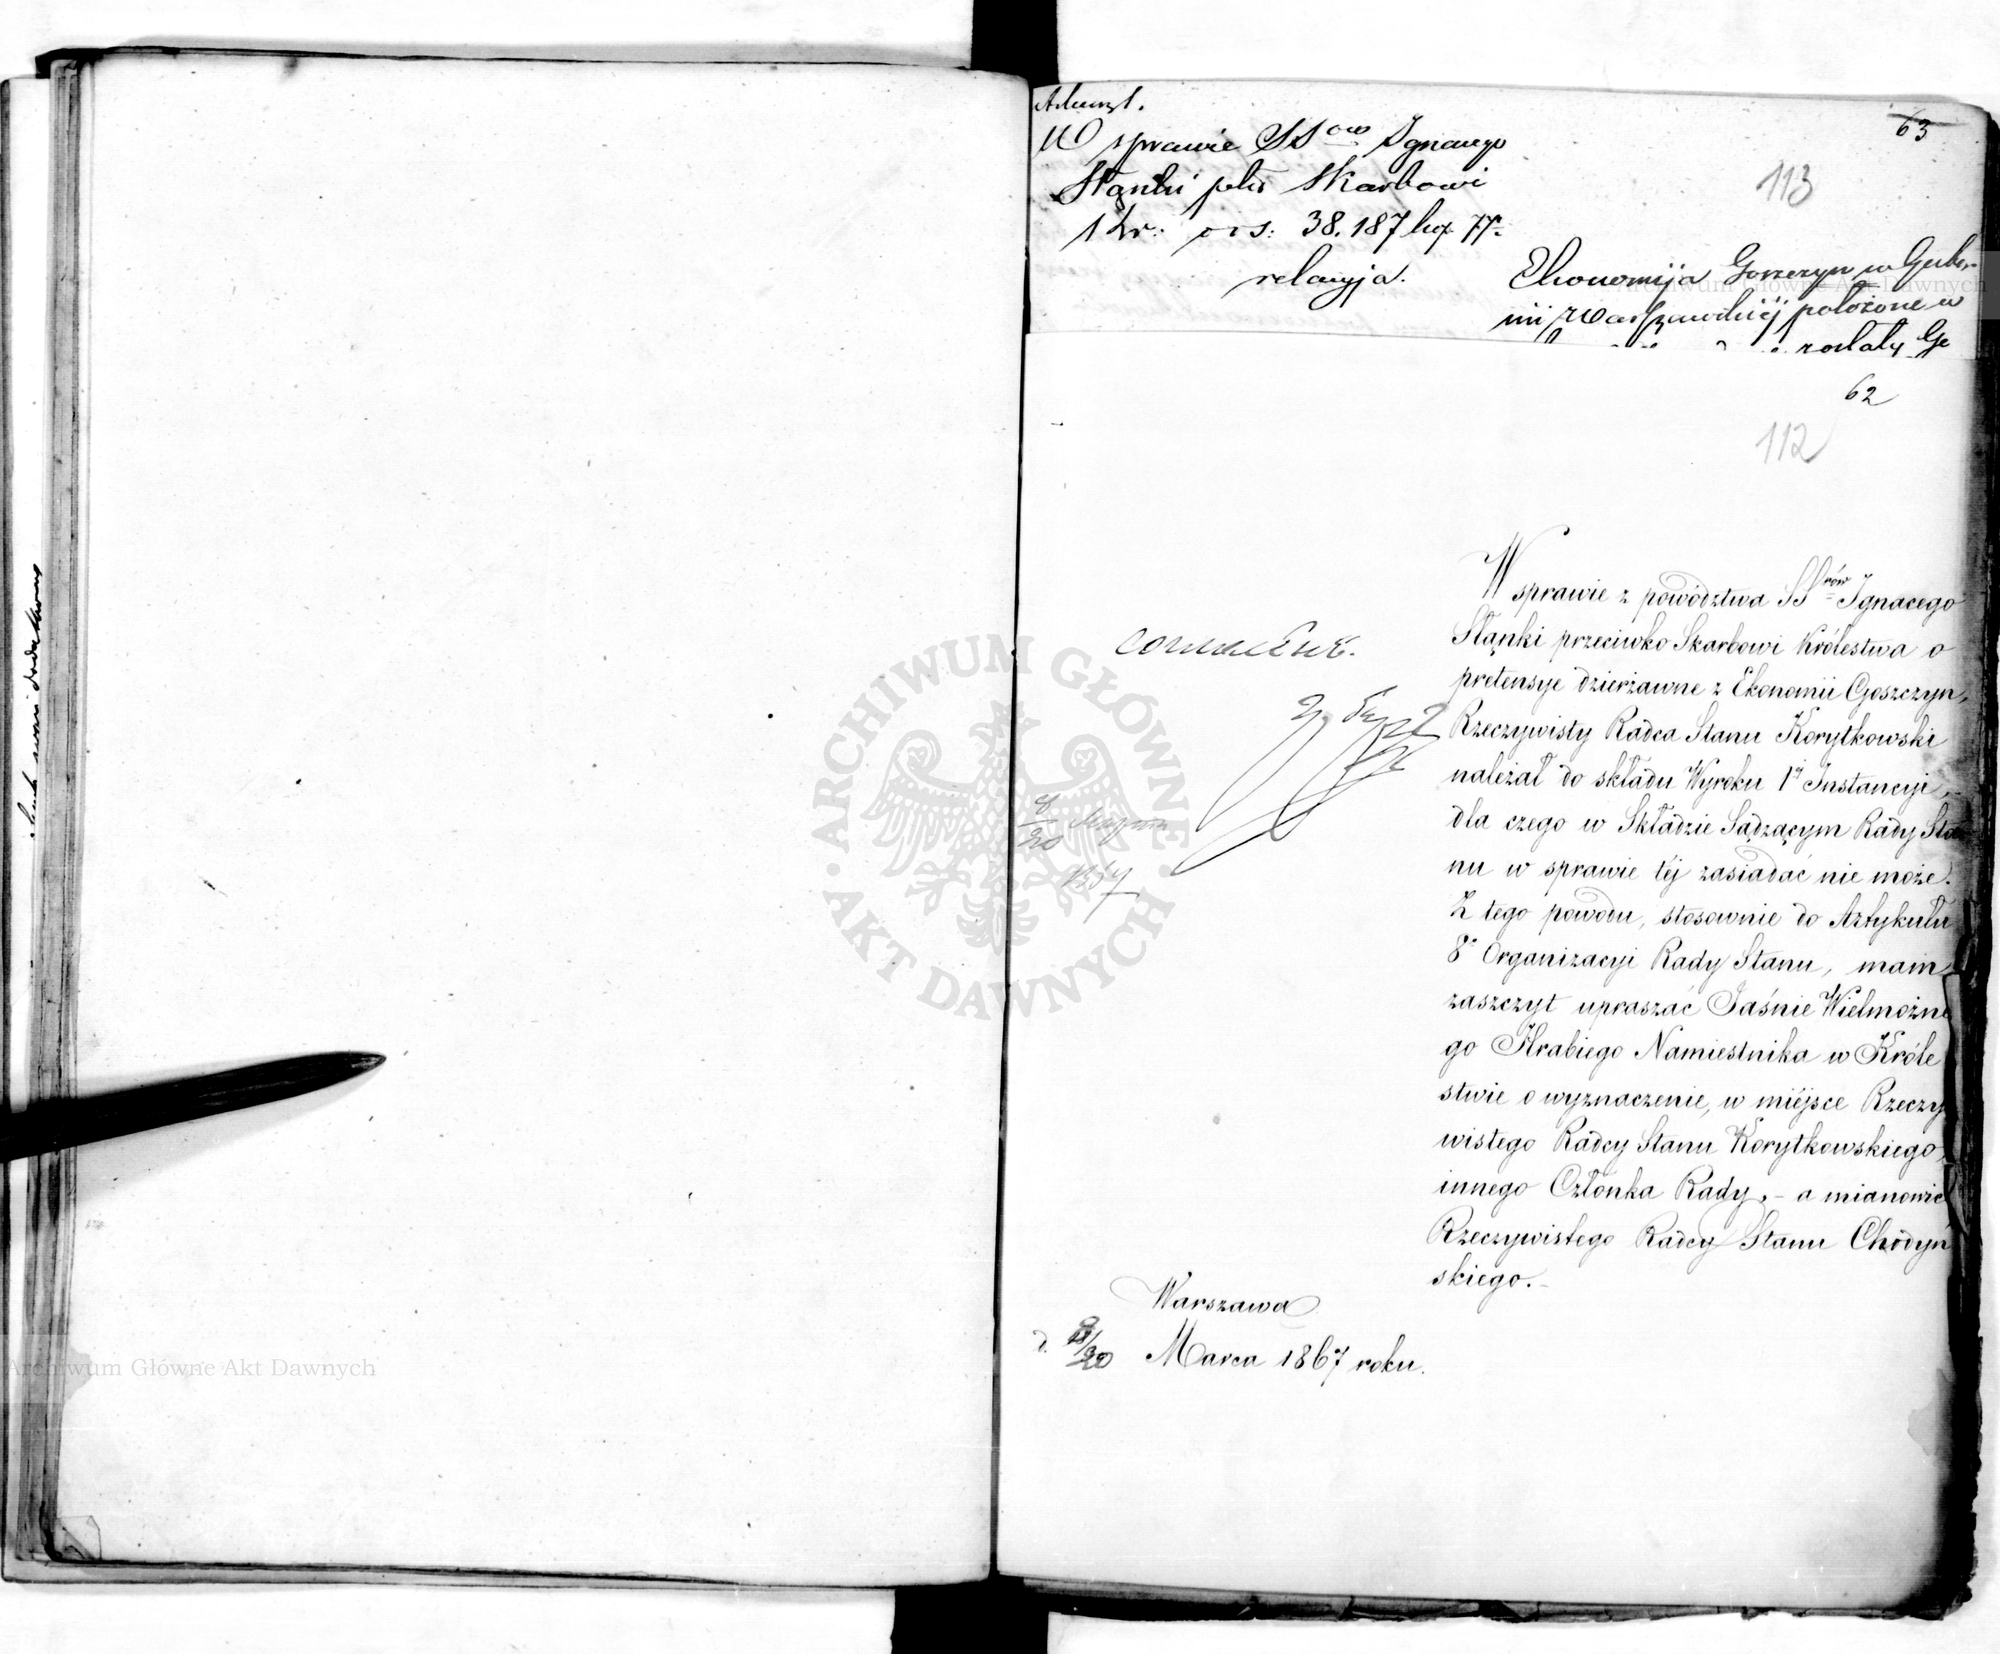 W sprawie SS ow Ignacego
Stanki ptko Skarbowi
Kr: o rs: 38.187 kop. 77.
relacyja.
63
113
Ekonomija Goszczyn w Guber
nii Warszawskiej położone w
zostały
62
112
W sprawie z powództwa SSrów Ignacego
Stanki przeciwko Skarbowi Królestwa o
pretensye dzierżawne z Ekonomii Goszczyn,
Rzeczywisty Radca Stanu Korytkowski
należał do składu Wyroku 1éj Instancyi,
dla czego w Składzie Sądzącym Rady Sta
nu w sprawie téj zasiadać nie może.
Z tego powodu, stosownie do Artykułu
8o Organizacyi Rady Stanu, mam
zaszczyt upraszać Jaśnie Wielmożne
go Hrabiego Namiestnika w Króle
stwie o wyznaczenie, w miéjsce Rzeczy
wistego Radcy Stanu Korytkowskiego,
innego Członka Rady, - a mianowici
Rzeczywistego Radcy Stanu Chodyń
skiego. -
согласенъ.
8/20
Warszawa
d. 8/20 Marca 1867 roku.
ARCHIWUM GŁÓWNE AKT DAWNYCH
Archiwum Główne Akt Dawnych
Archiwum Główne Akt Dawnych